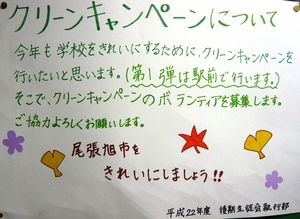 クリーンキャンペーンについて
今年も学校をきれいにするために、クリーンキャンペーンを
行いたいと思います。(第1弾は駅前で行います。)
そこで、クリーンキャンペーンのボランティアを募集します。
ご協力よろしくお願いします。
尾張旭市を
きれいにしましょう!!
平成22年度 後期生徒会執行部